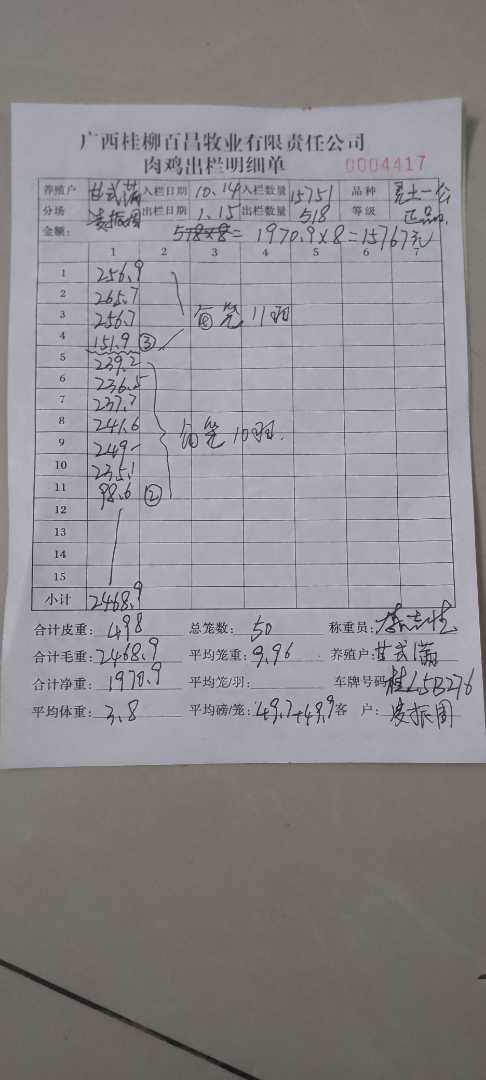 广西桂柳百昌牧业有限责任公司
肉鸡出栏明细单 0004417
养殖户 甘武满 入栏日期 10.14 入栏数量 15751 品种 土一公
分场 凌振周 出栏日期 1.15 出栏数量 518 等级 正品
金额: 518×8= 1970.9×8=15767元
1 2 3 4 5 6 7
1 256.9
2 265.7
3 256.7 每笼11羽
4 151.9 ③
5 239.2
6 236.5
7 237.7
8 241.6
9 249- 每笼10羽.
10 235.1
11 98.6 ②
12
13
14
15
小计 2468.9
合计皮重: 498 总笼数: 50 称重员:
合计毛重: 2468.9 平均笼重: 9.96 养殖户: 甘武满
合计净重: 1970.9 平均笼/羽: 车牌号码 桂L5B276
平均体重: 3.8 平均磅/笼: 49.7+49.9 客户: 凌振周